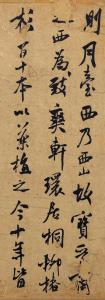 則月臺西乃西山故寶晉齋
之西爲致爽軒環居桐柳椿
杉百十本以藥植之今十年皆